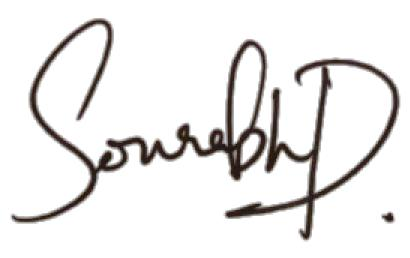 Sourabh D.